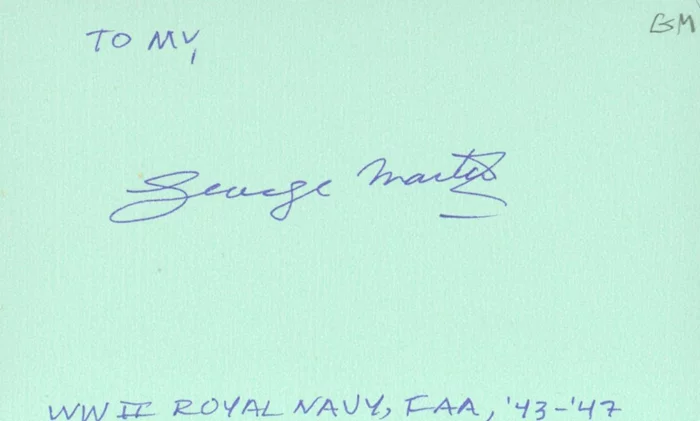 GM
TO MY,
George Martin
WW II ROYAL NAVY, FAA, '43-'47